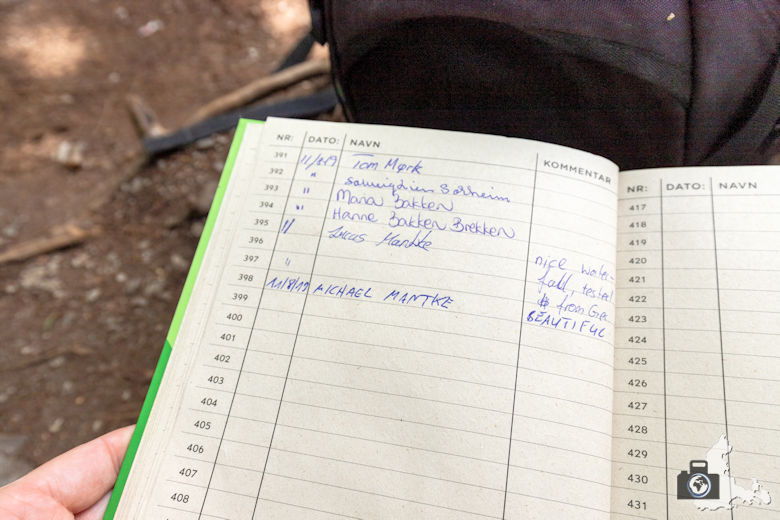 NR: DATO: NAVN KOMMENTAR
391 11/8-19 Tom Mørk
392 " Solveig Lien Solheim
393 " Maria Bakken
394 " Hanne Bakken Brekken
395 11 Lucas Mantke nice water
396 fall, tested
397 " from
398 11/8/19 MICHAEL MANTKE BEAUTIFUL
399
400
401
402
403
404
405
406
407
408
NR: DATO: NAVN
417
418
419
420
421
422
423
424
425
426
427
428
429
430
431